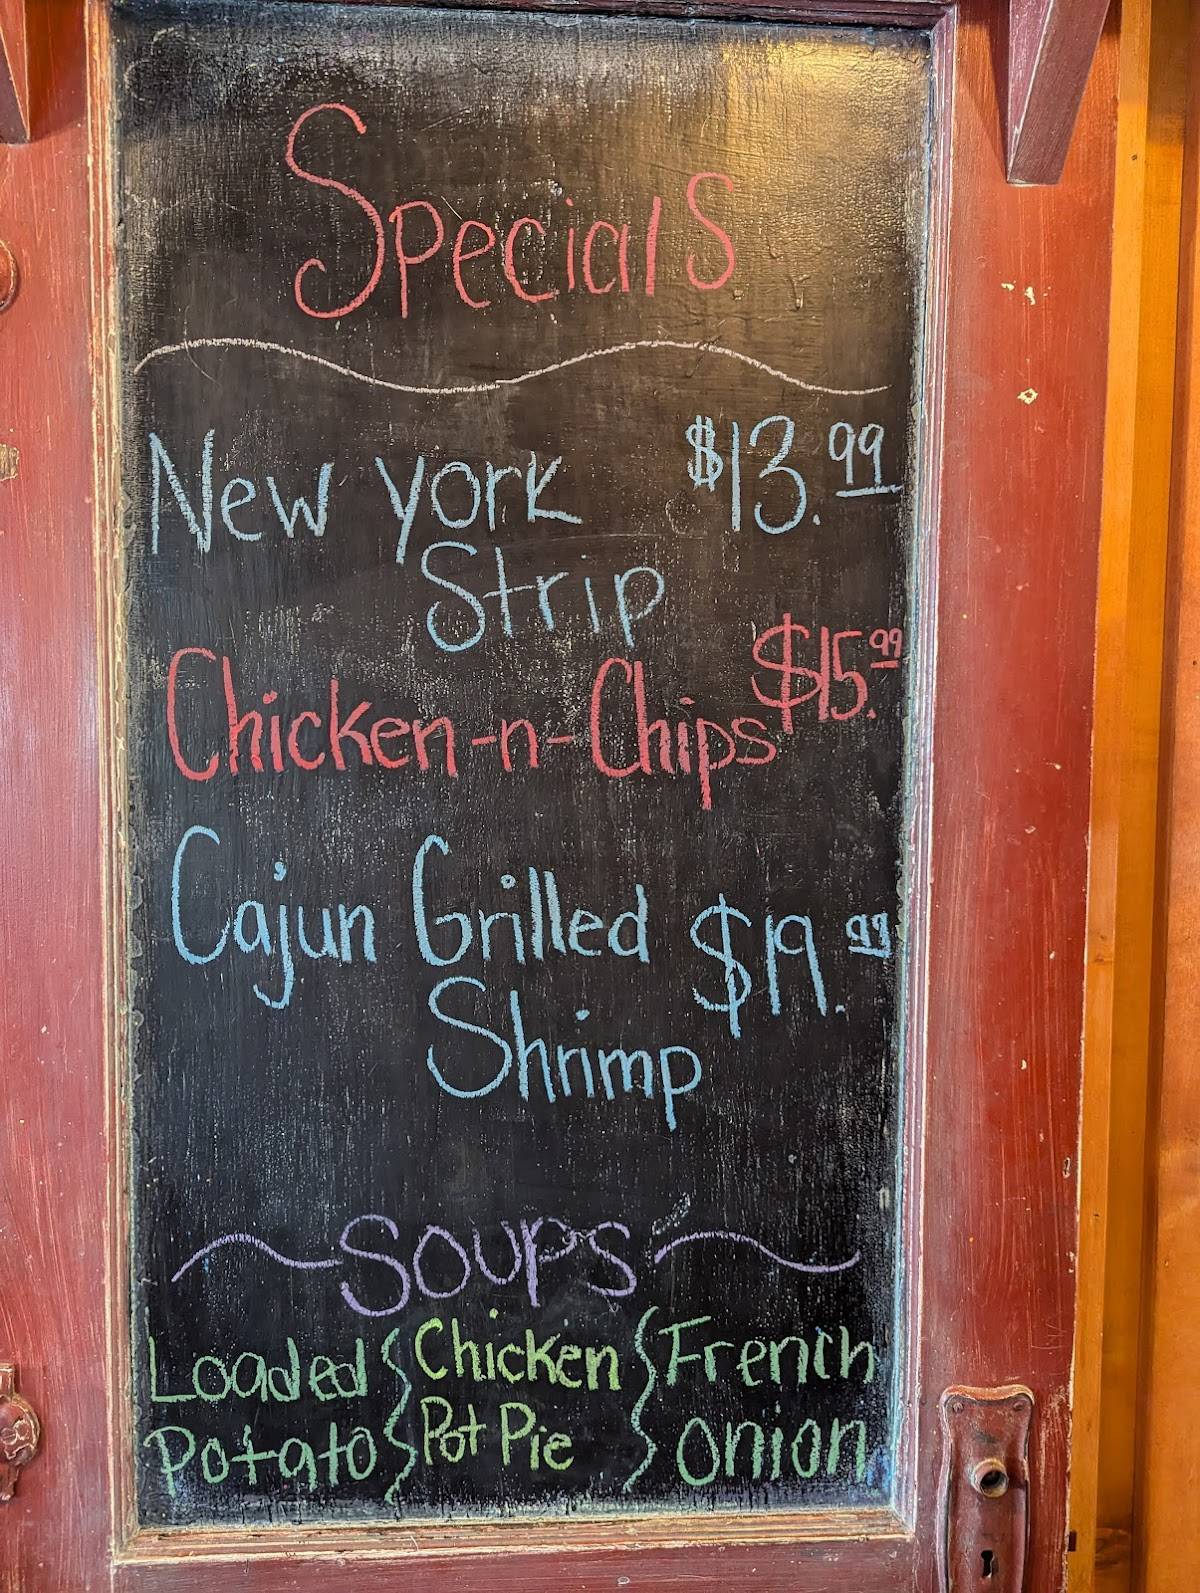 Specials
New York $13.99
Strip
Chicken-n-Chips $15.99
Cajun Grilled $19.99
Shrimp
Soups
Loaded Chicken French
Potato Pot Pie Onion